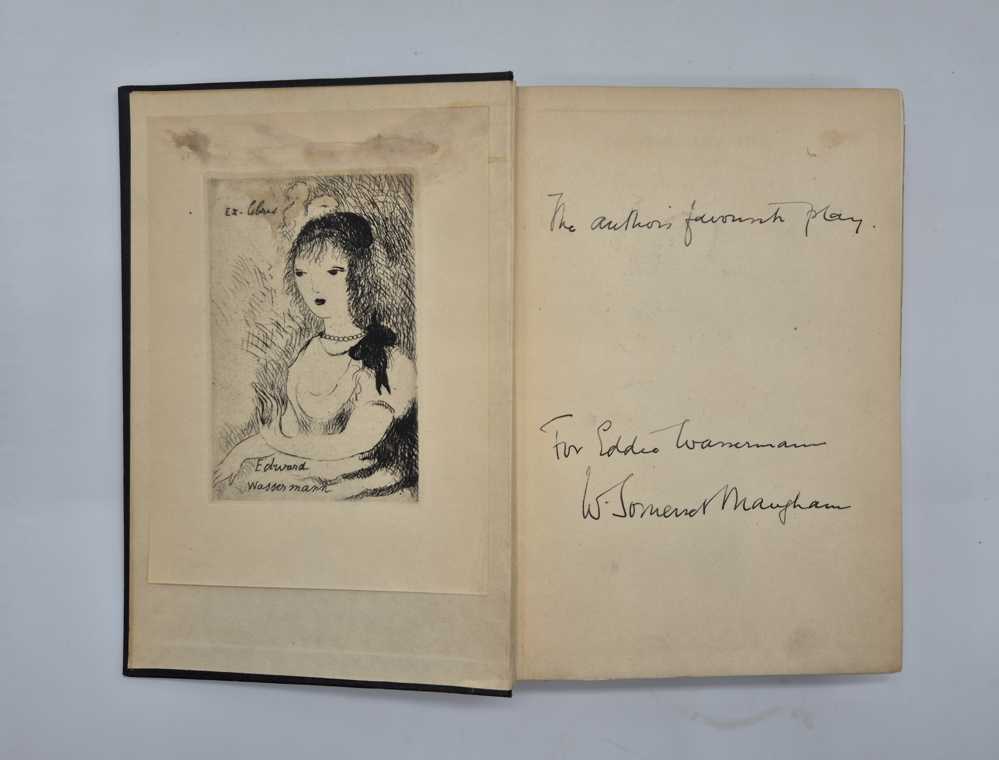 Ex-libris
Edward
Wassermann
The author's favourite play.
For Eddie Wassermann
W. Somerset Maugham